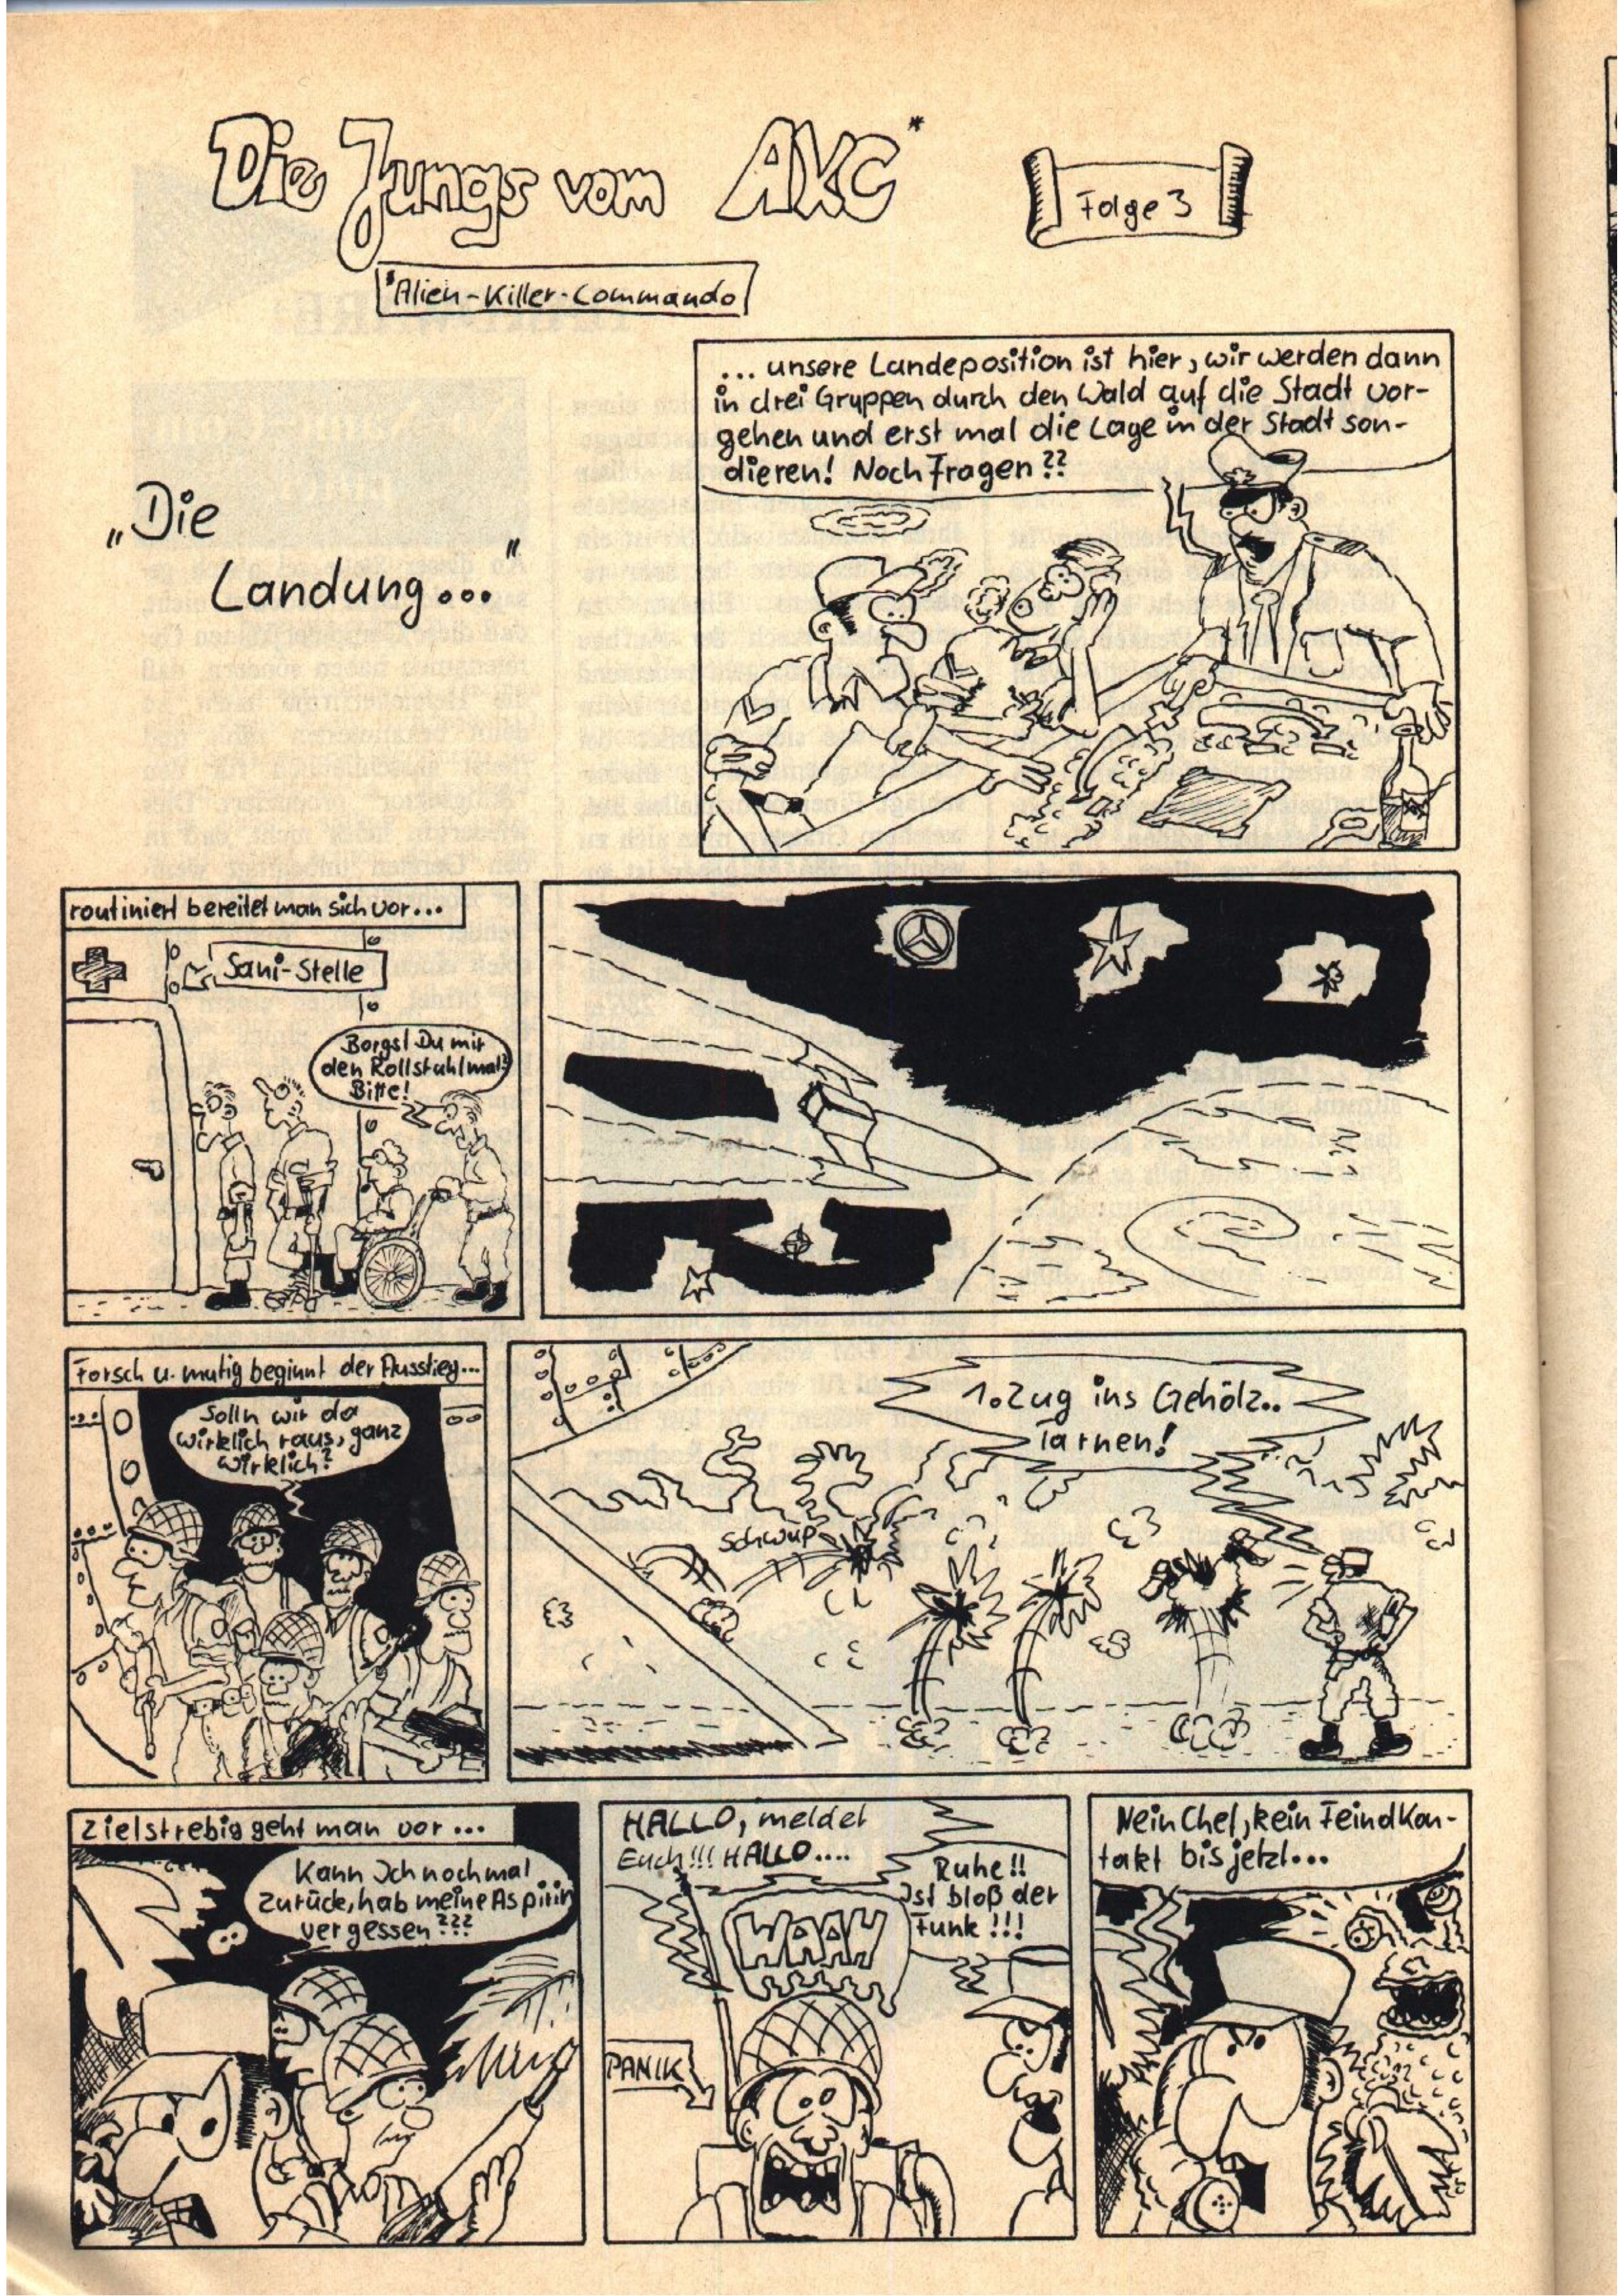 Die Jungs vom AKC*
Folge 3
*Alien-Killer-Commando
"Die
Landung..."
... unsere Landeposition ist hier, wir werden dann
in drei Gruppen durch den Wald auf die Stadt vor-
gehen und erst mal die Lage in der Stadt son-
dieren! Noch Fragen??
routiniert bereitet man sich vor...
Sani-Stelle
Borgst Du mir
den Rollstuhl mal?
Bitte!
Forsch u. mutig beginnt der Ausstieg...
Solln wir da
wirklich raus, ganz
wirklich?
1. Zug ins Gehölz..
Tarnen!
Schwup
Zielstrebig geht man vor...
Kann Ich nochmal
zurück, hab meine Aspirin
vergessen???
HALLO, meldet
Euch!!! HALLO....
Ruhe!!
Ist bloß der
Funk!!!
WAAH
PANIK
Nein Chef, kein Feindkon-
takt bis jetzt...